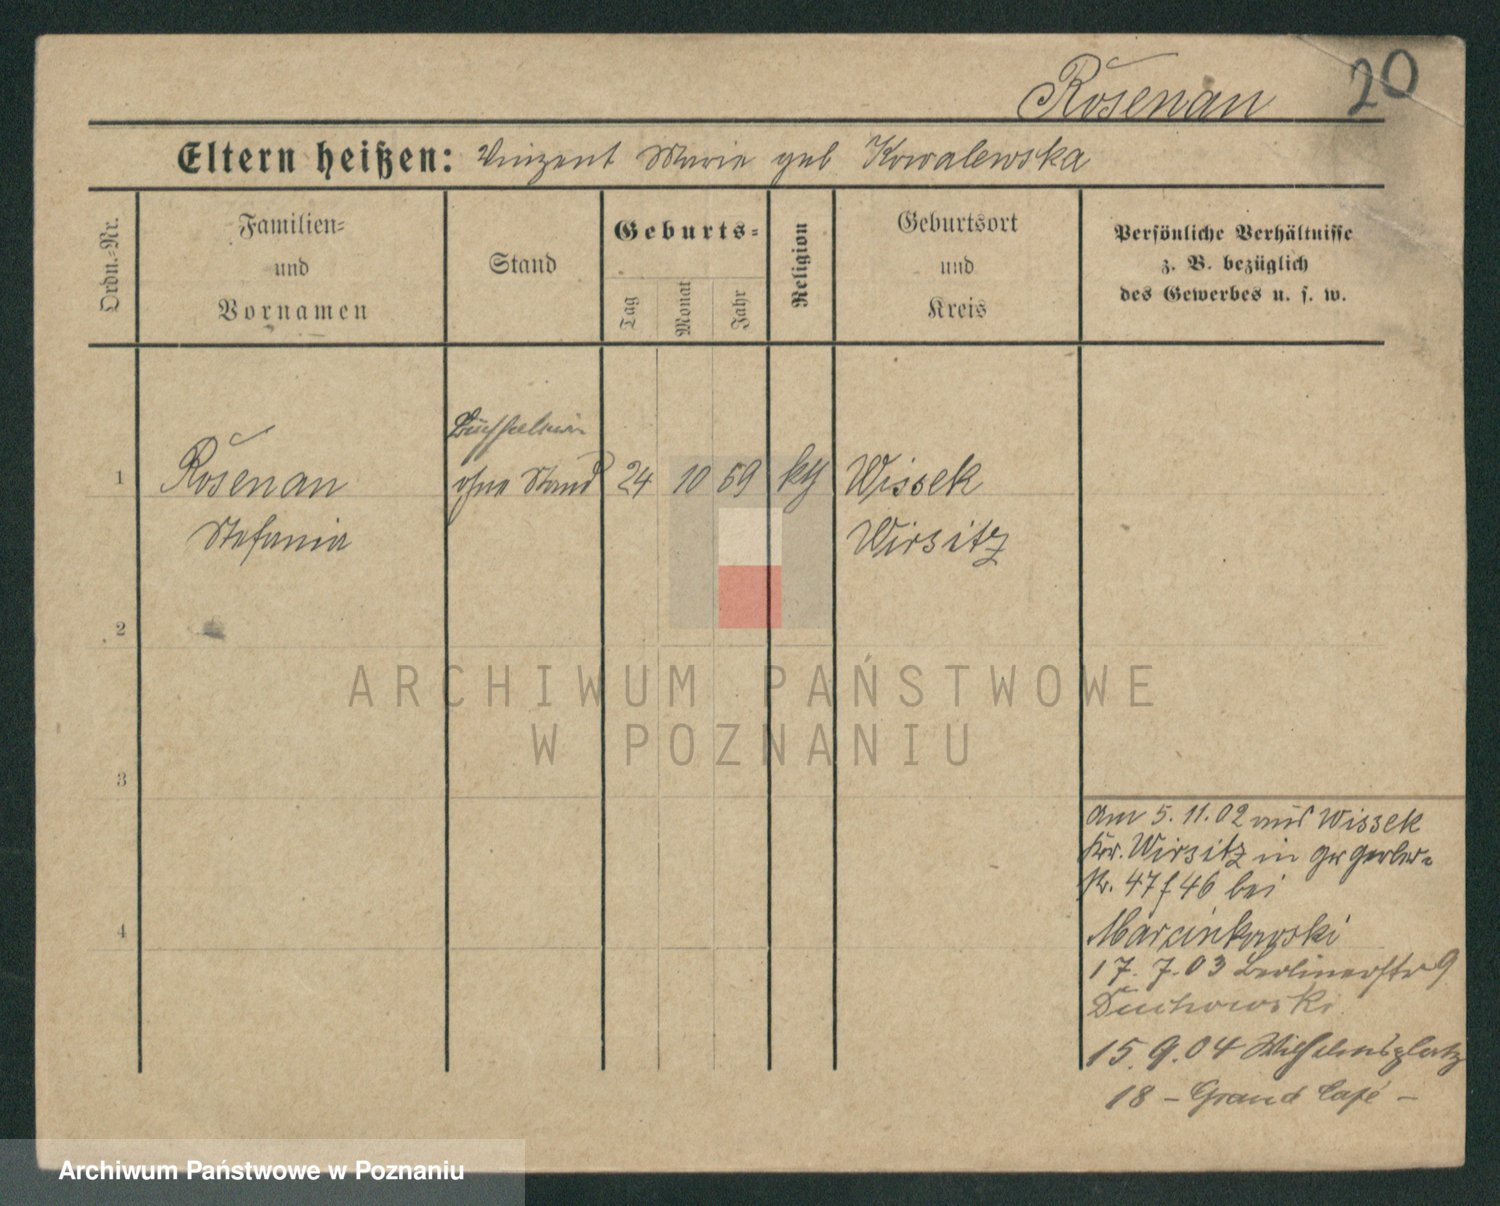 20
Rosenau
Eltern heißen: Vinzent Marie geb Kowalewska
Ordn.-Nr.
Familien-
und
Vornamen
Stand
Geburts-
Tag
Monat
Jahr
Religion
Geburtsort
und
Kreis
Persönliche Verhältnisse
z. B. bezüglich
des Gewerbes u. s. w.
1
Rosenau
Stefania
ohne Stand
24
10
59
kth
Wissek
Wirsitz
2
3
4
Am 5. 11. 02 aus Wissek
Kr. Wirsitz in
47/46 bei
Marcinkowski
17. 7. 03 Berlinerstr 9
Duchowski
15. 9. 04 Wilhelmsplatz
18 – Grand Café –
ARCHIWUM PAŃSTWOWE
W POZNANIU
Archiwum Państwowe w Poznaniu